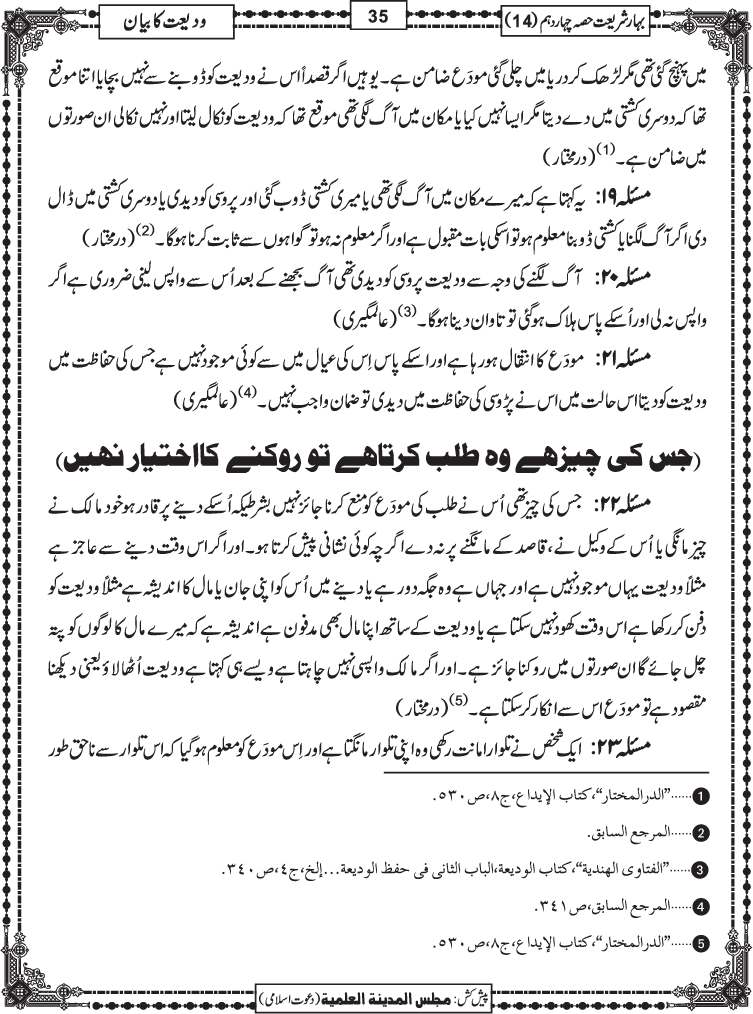 بہارِشریعت حصہ چہاردہم (14)
35
ودیعت کا بیان
میں پہنچ گئی تھی مگر لڑھک کر دریا میں چلی گئی مودَع ضامن ہے۔ یوہیں اگر قصداً اس نے ودیعت کو ڈوبنے سے نہیں بچایا اتنا موقع
تھا کہ دوسری کشتی میں دے دیتا مگر ایسا نہیں کیا یا مکان میں آگ لگی تھی موقع تھا کہ ودیعت کو نکال لیتا اور نہیں نکالی ان صورتوں
میں ضامن ہے۔(1) (درمختار)
مسئلہ ۱۹: یہ کہتا ہے کہ میرے مکان میں آگ لگی تھی یا میری کشتی ڈوب گئی اور پروسی کو دیدی یا دوسری کشتی میں ڈال
دی اگر آگ لگنا یا کشتی ڈوبنا معلوم ہو تو اسکی بات مقبول ہے اور اگر معلوم نہ ہو تو گواہوں سے ثابت کرنا ہوگا۔(2) (درمختار)
مسئلہ ۲۰: آگ لگنے کی وجہ سے ودیعت پروسی کو دیدی تھی آگ بجھنے کے بعد اُس سے واپس لینی ضروری ہے اگر
واپس نہ لی اور اُسکے پاس ہلاک ہوگئی تو تاوان دینا ہوگا۔(3) (عالمگیری)
مسئلہ ۲۱: مودَع کا انتقال ہورہا ہے اور اسکے پاس اِس کی عیال میں سے کوئی موجود نہیں ہے جس کی حفاظت میں
ودیعت کو دیتا اس حالت میں اس نے پڑوسی کی حفاظت میں دیدی تو ضمان واجب نہیں۔(4) (عالمگیری)
(جس کی چیزھے وہ طلب کرتاھے تو روکنے کااختیار نھیں)
مسئلہ ۲۲: جس کی چیز تھی اُس نے طلب کی مودَع کو منع کرنا جائز نہیں بشرطیکہ اُسکے دینے پر قادر ہو خود مالک نے
چیز مانگی یا اُس کے وکیل نے، قاصد کے مانگنے پر نہ دے اگرچہ کوئی نشانی پیش کرتا ہو۔ اور اگر اس وقت دینے سے عاجز ہے
مثلاً ودیعت یہاں موجود نہیں ہے اور جہاں ہے وہ جگہ دور ہے یا دینے میں اُس کو اپنی جان یا مال کا اندیشہ ہے مثلاً ودیعت کو
دفن کر رکھا ہے اس وقت کھود نہیں سکتا ہے یا ودیعت کے ساتھ اپنا مال بھی مدفون ہے اندیشہ ہے کہ میرے مال کا لوگوں کو پتہ
چل جائے گا ان صورتوں میں روکنا جائز ہے۔ اور اگر مالک واپسی نہیں چاہتا ہے ویسے ہی کہتا ہے ودیعت اُٹھا لاؤ یعنی دیکھنا
مقصود ہے تو مودَع اس سے انکار کرسکتا ہے۔(5) (درمختار)
مسئلہ ۲۳: ایک شخص نے تلوار امانت رکھی وہ اپنی تلوار مانگتا ہے اور اِس مودَع کو معلوم ہوگیا کہ اس تلوار سے ناحق طور
1......"الدرالمختار"،كتاب الإيداع،ج٨،ص٥٣٠.
2......المرجع السابق.
3......"الفتاوى الهندية"،كتاب الوديعة،الباب الثانى فى حفظ الوديعة...إلخ،ج٤،ص٣٤٠.
4......المرجع السابق،ص٣٤١.
5......"الدرالمختار"،كتاب الإيداع،ج٨،ص٥٣٠.
پیش کش: مجلس المدینة العلمیة (دعوت اسلامی)